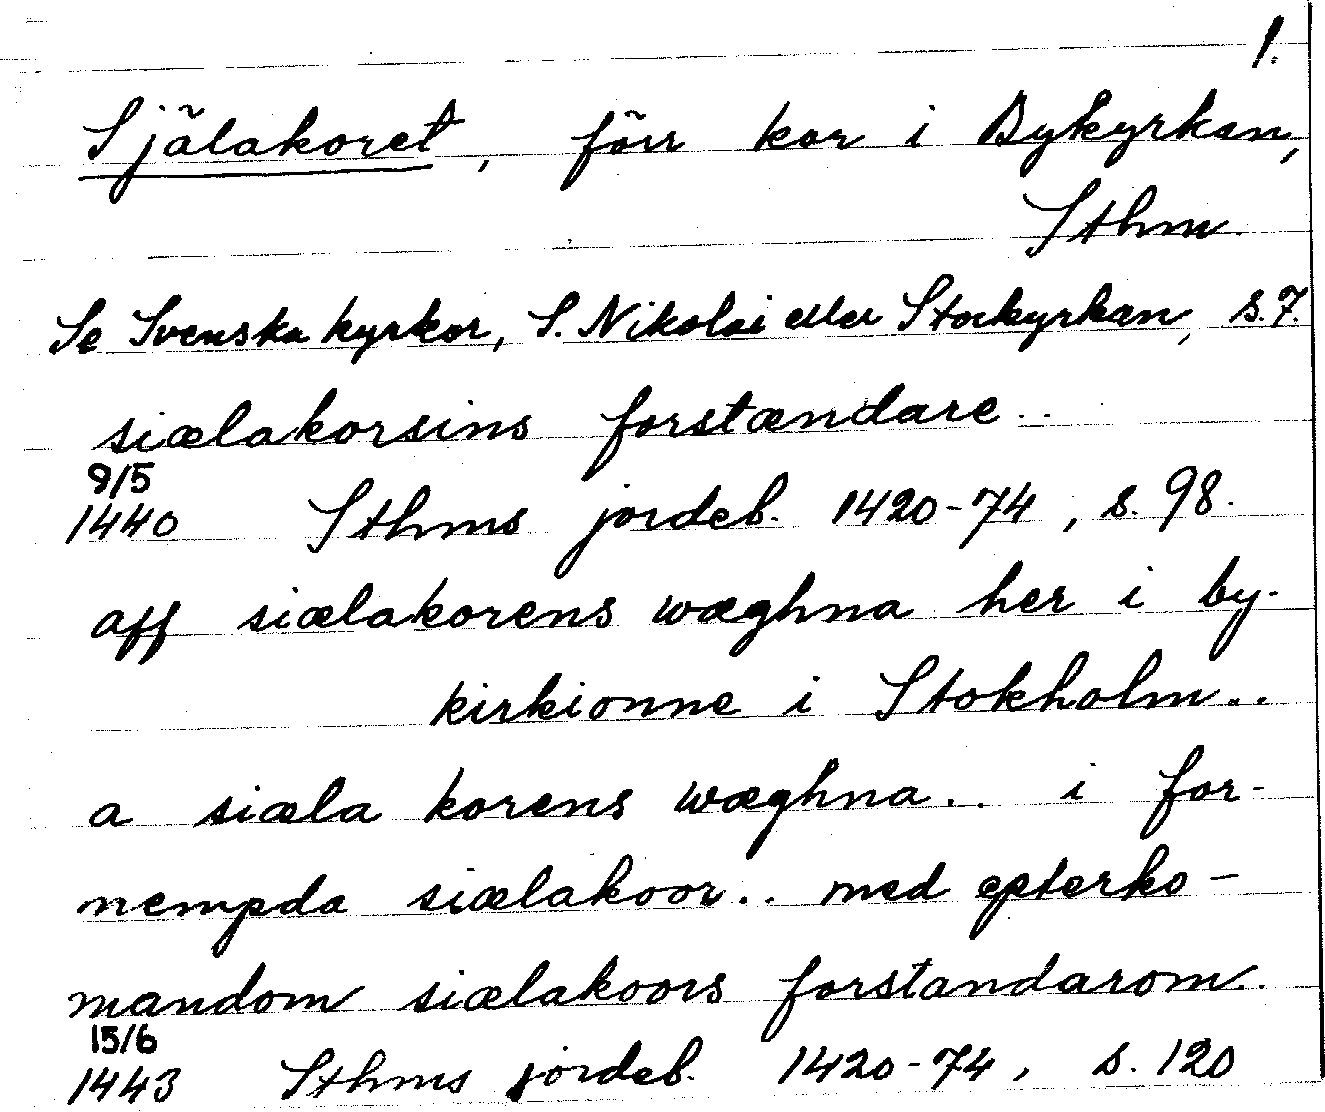 1.
Själakoret, förr kor i Bykyrkan,
Sthm.
Se Svenska kyrkor, S. Nikolai eller Storkyrkan, s. 7.
siælakorsins forstændare..
9/5
1440 Sthms jordeb. 1420-74, s. 98.
aff siælakorens wæghna her i by-
kirkionne i Stokholm..
a siæla korens wæghna.. i for-
nempda siælakoor.. med epterko-
mandom siælakoors forstandarom..
15/6
1443 Sthms jordeb. 1420-74, s. 120